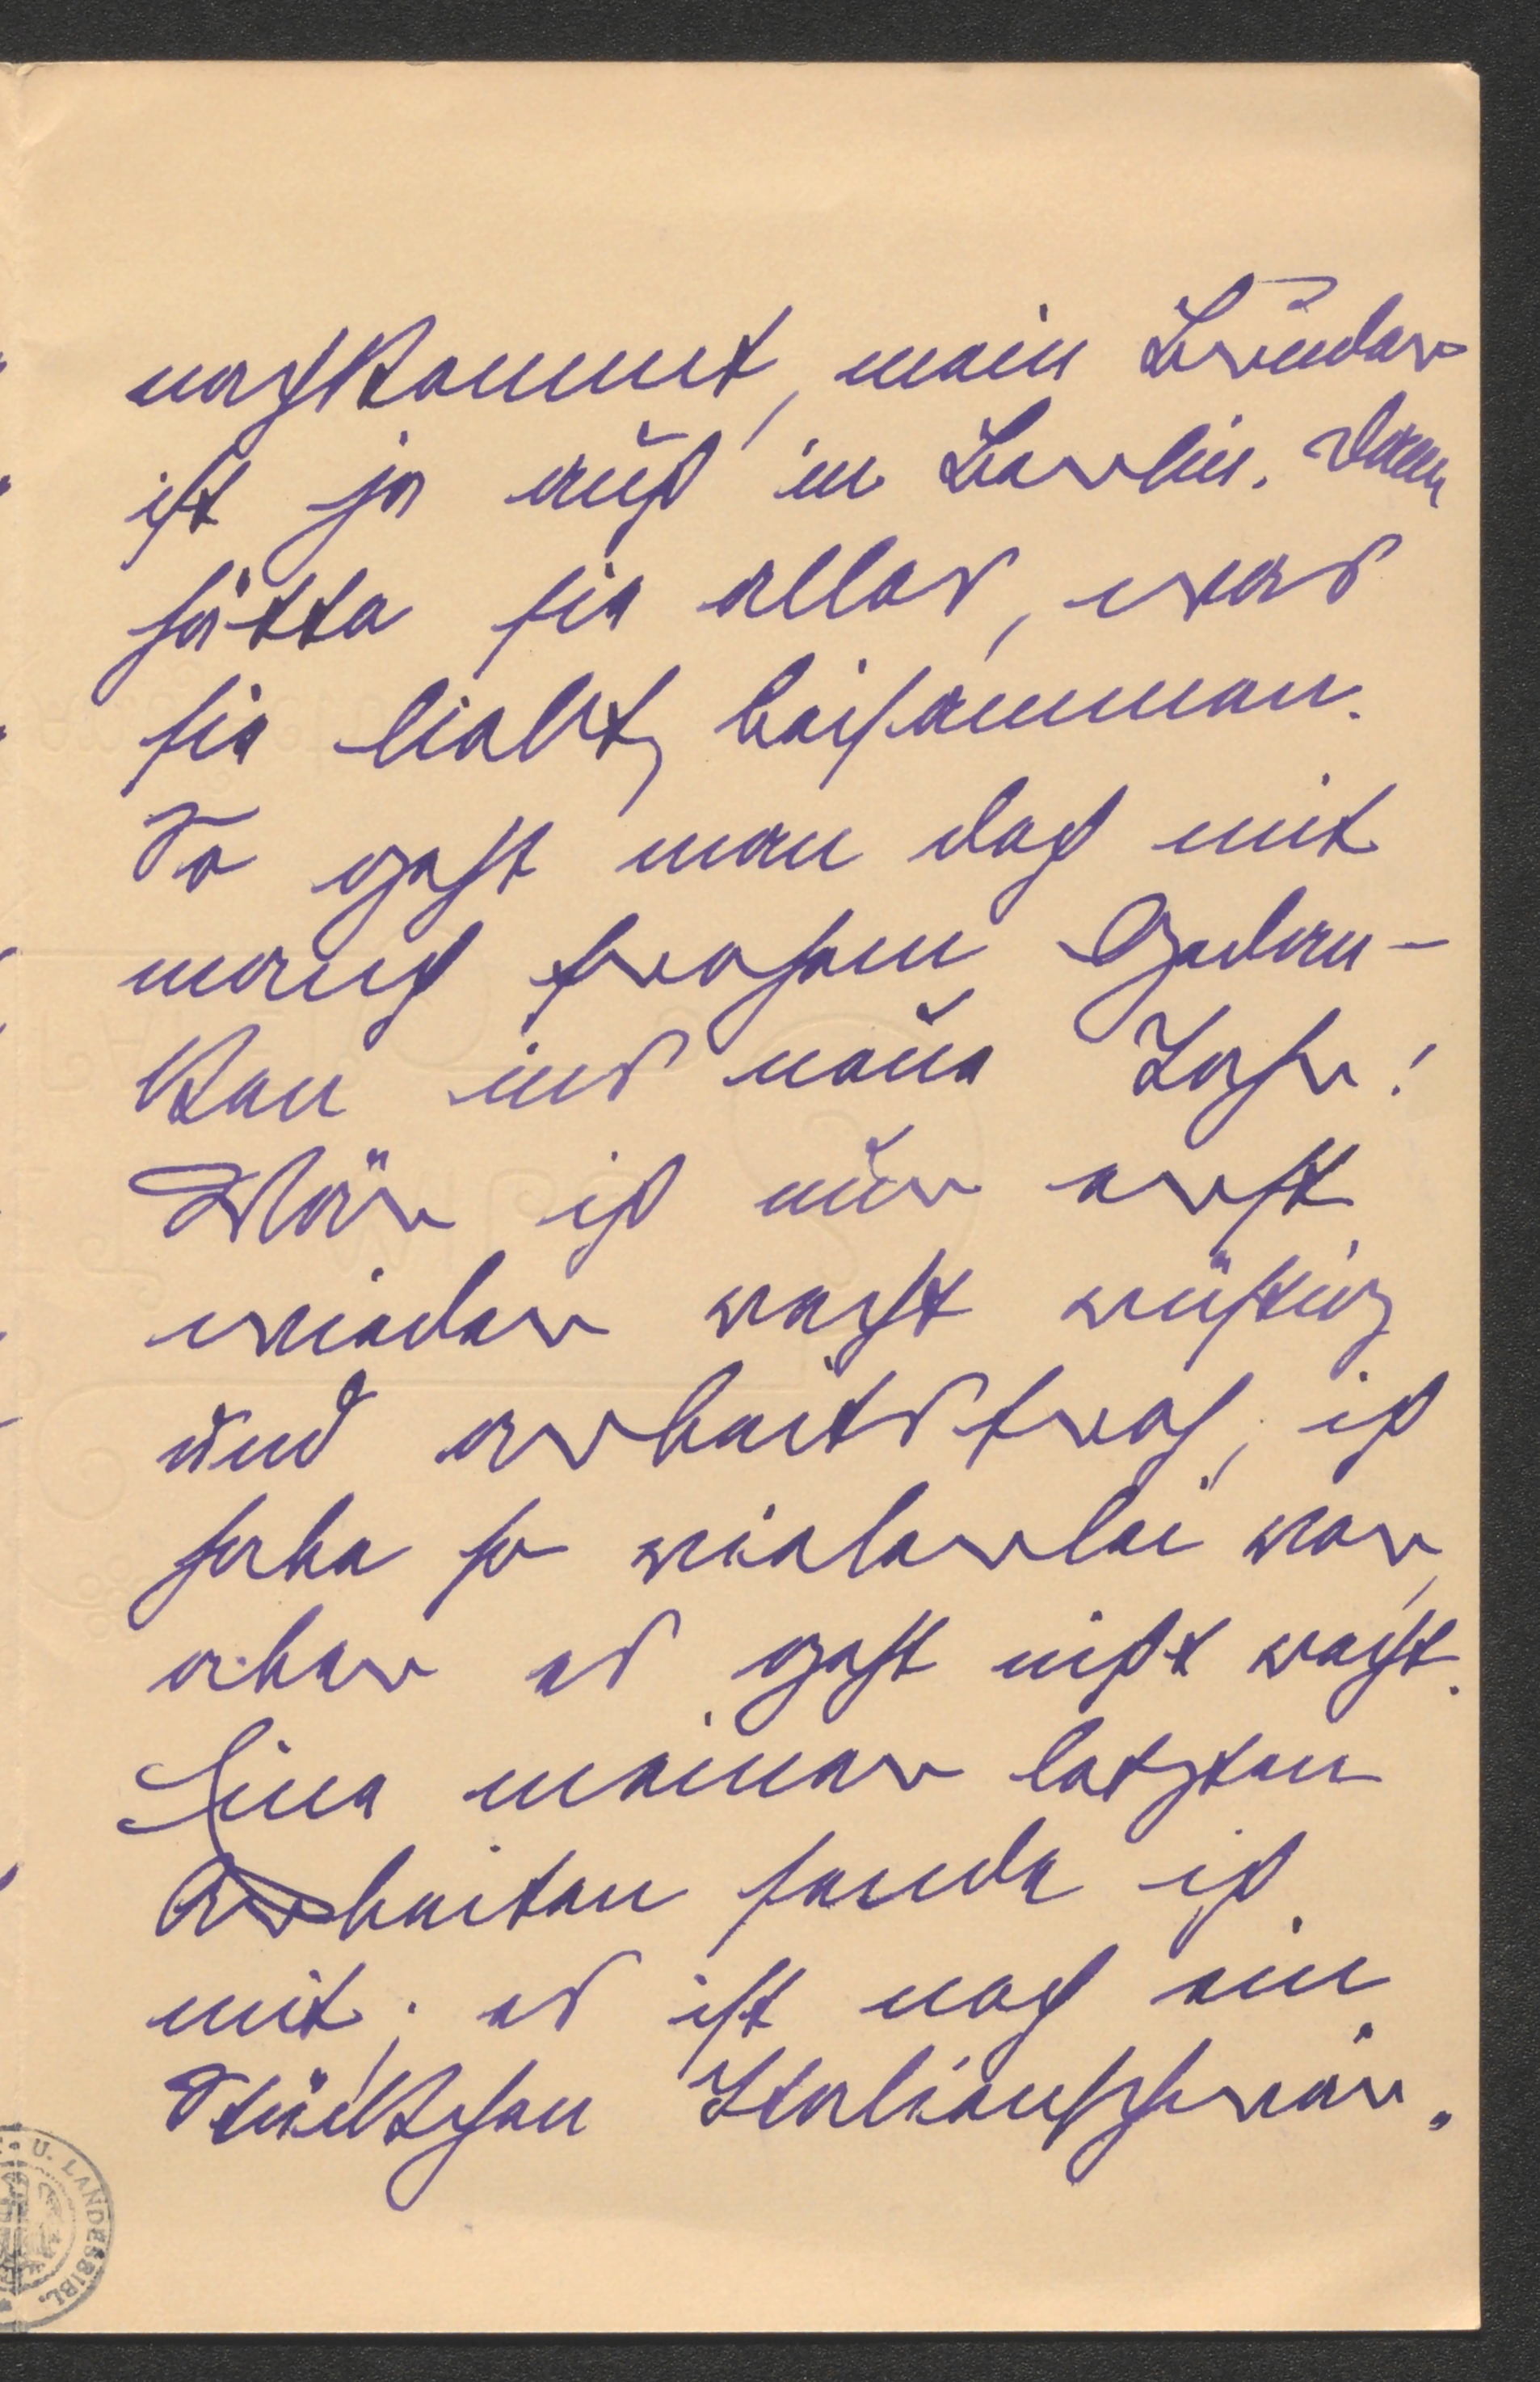 nachkommt, mein Bruder
ist ja auch in Berlin. Dann
hätte sie alles, was
sie liebt, beisammen.
So geht man doch mit
manch frohem Gedan-
ken ins neue Jahr!
Wär ich nur erst
wieder recht rüstig
und arbeitsfroh; ich
habe so vielerlei vor,
aber es geht nicht recht.
Eine meiner letzten
Arbeiten sende ich
mit; es ist noch ein
Stückchen
U. LANDESBIBL.